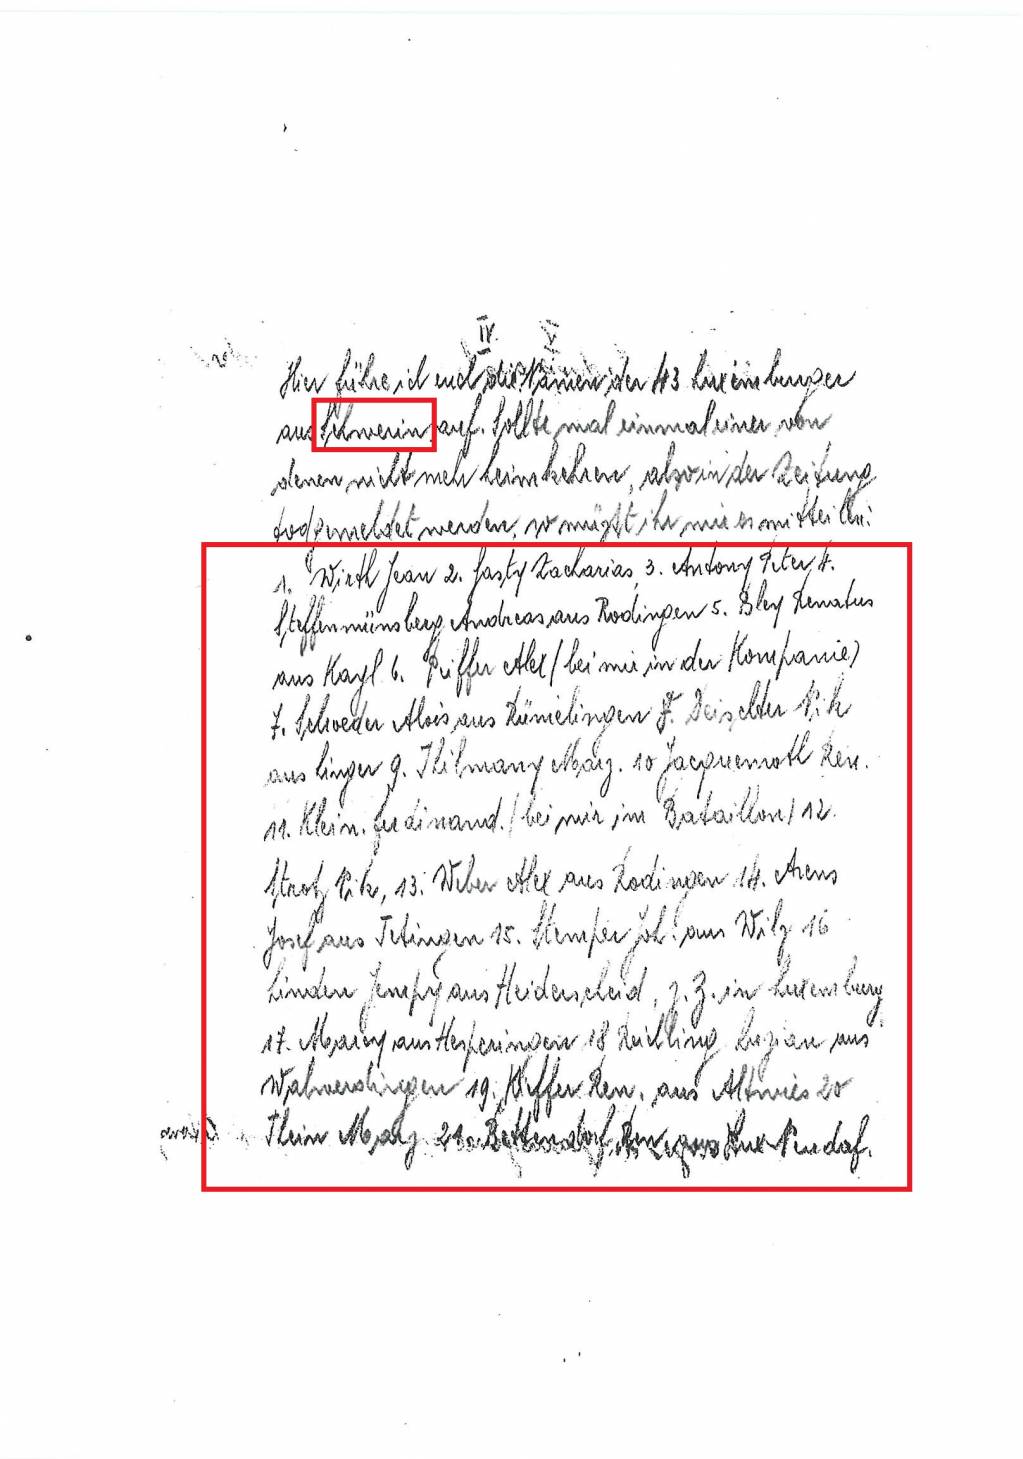 IV V
Hier führe ich euch die Namen der 43 Luxemburger
aus Schwerin auf. Sollte mal einmal einer von
denen nicht meh heimkehren, also in der Zeitung
todgemeldet werden, so müßt ihr mir es mitteilen:
1. Wirth Jean 2. Gasty Zacharias, 3. Antony Peter, 4.
Steffenmünsberg Andreas aus Rodingen 5. Bley Renatus
aus Kayl 6. Peiffer Alex (bei mir in der Kompanie)
7. Schroeder Alois aus Rümelingen 8. Deischter Nik
aus Linger 9. Thilmany Marz. 10 Jacquemoth Ren.
11. Klein. Ferdinand. (bei mir im Bataillon) 12.
Strotz Nik, 13. Weber Alex aus Rodingen 14. Arens
Josef aus Tetingen 15. Stemper Joh. aus Wilz 16
Linden Jempy aus Heiderscheid, z. Z. in Luxemburg
17. Marcy aus Hesperingen 18 Reichling Luzian aus
Walwerdingen 19. Kiffer Ren. aus Altwies 20
Thein Marz 21. Bettendorf Ren aus Lux Neudof.